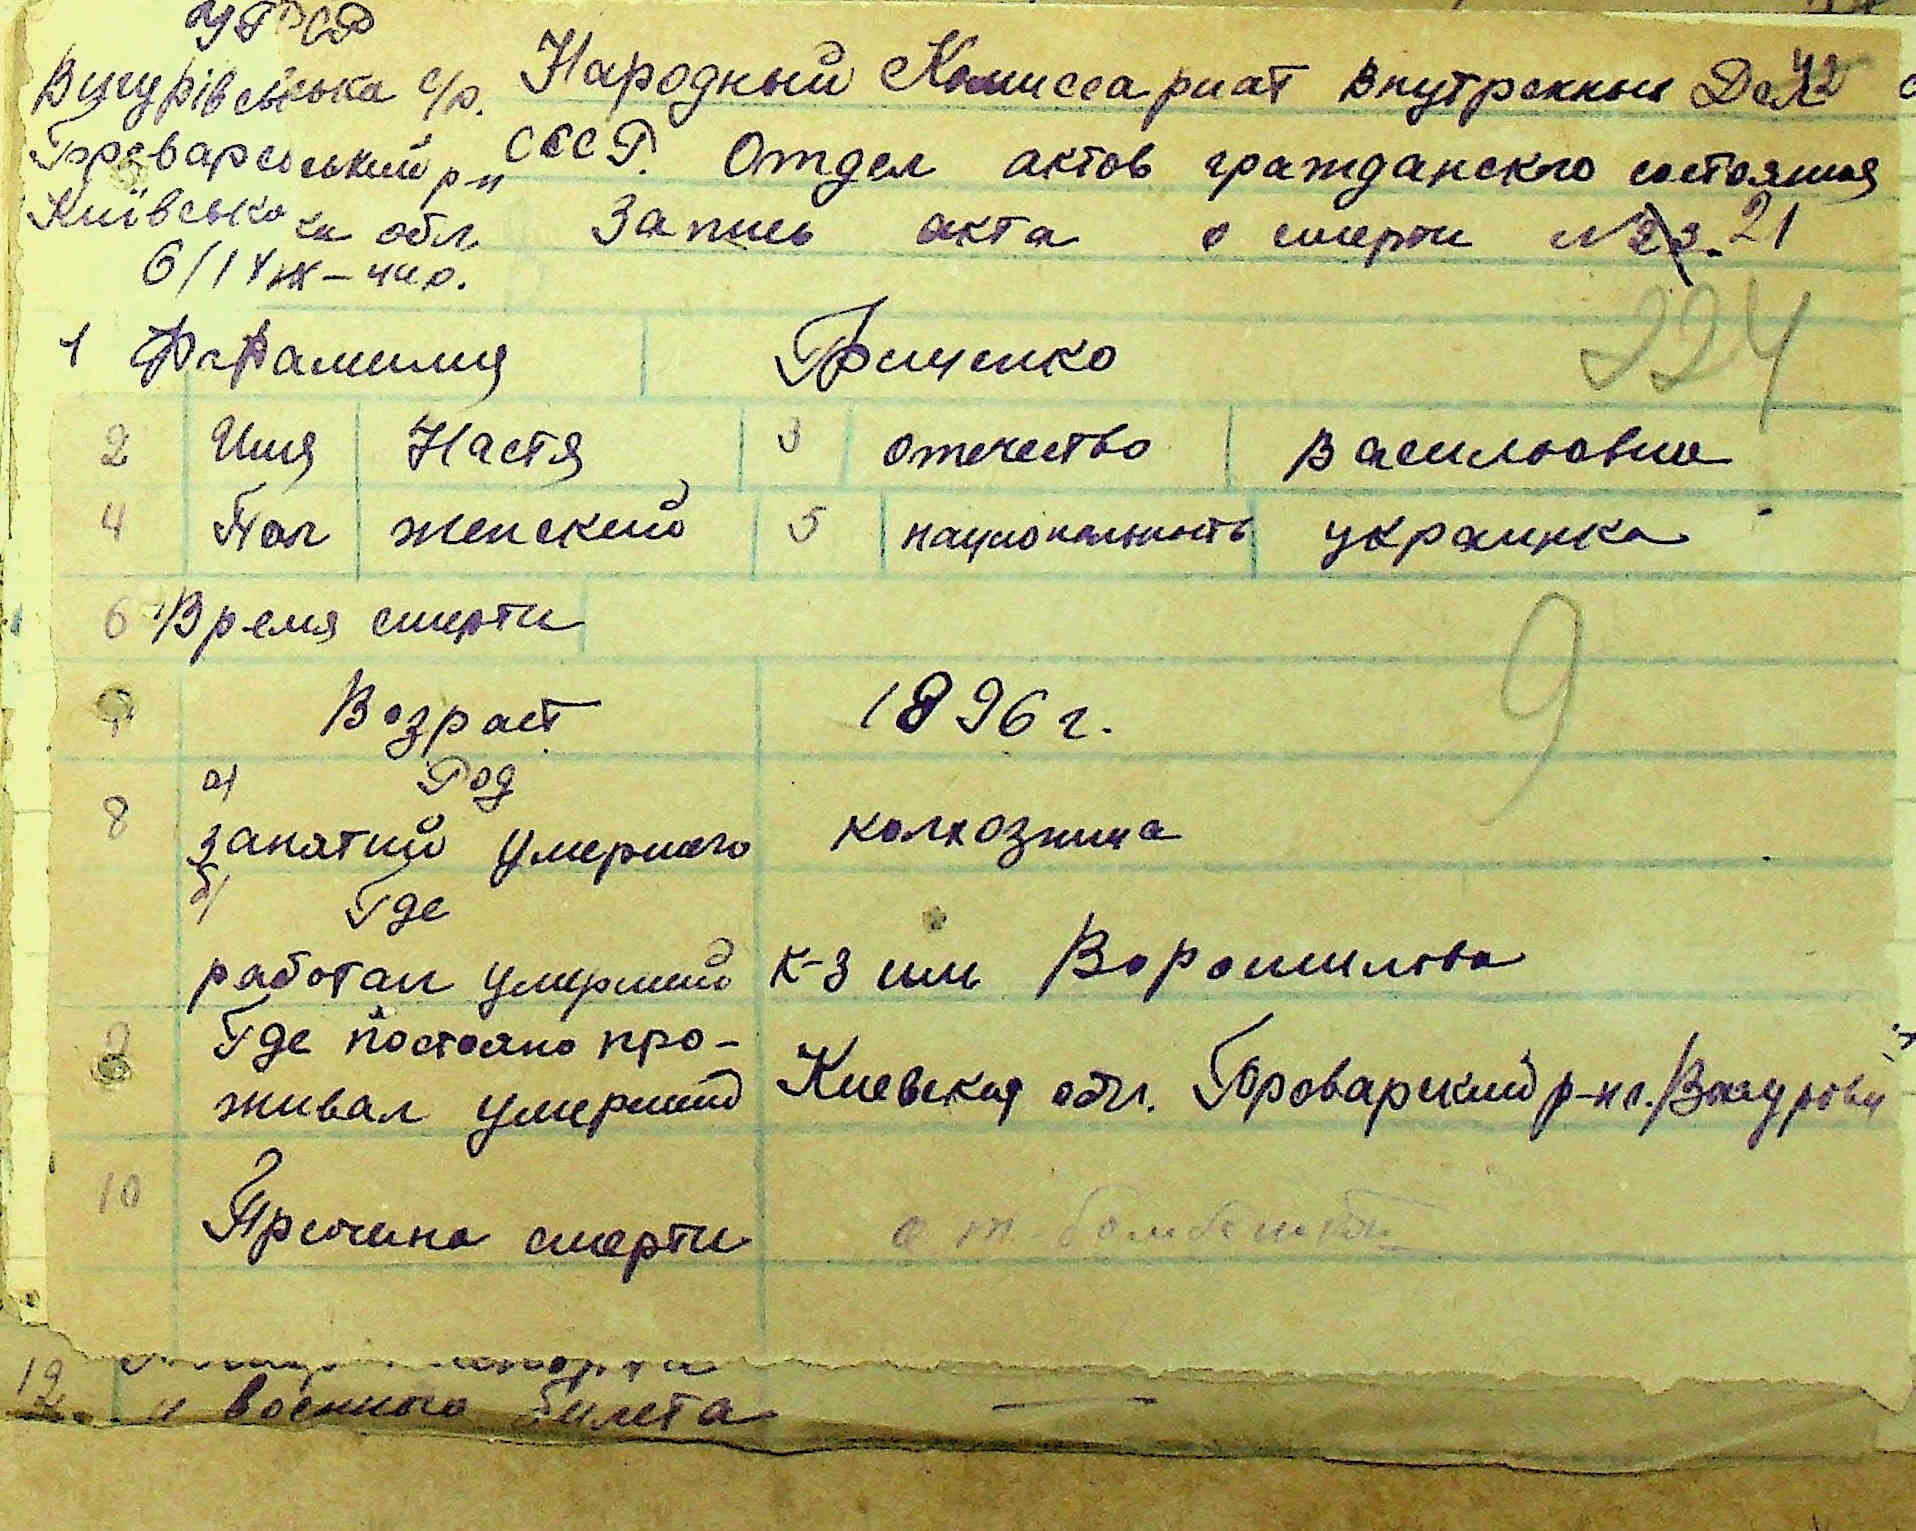 УРСР
Вигурівська с/р. Народный Комиссариат Внутренних Дел 42
Броварський р-н СССР. Отдел актов гражданского состояния
Київська обл. Запись акта о смерти № 21
6/ІV
1 Фамилия Грищенко 224
2 Имя Настя 3 отечество Васильовна
4 Пол женский 5 национальность украинка
6 Время смерти
9
Возраст 1896 г.
а) Род
8 занятий умершего колхозница
б) Где
работал умерший к-з им Ворошилова
9 Где постояно про-
живал умерший Киевская обл. Броварский р-н с. Вигуров
10 Причина смерти от бомбежки
12 и военного билета —